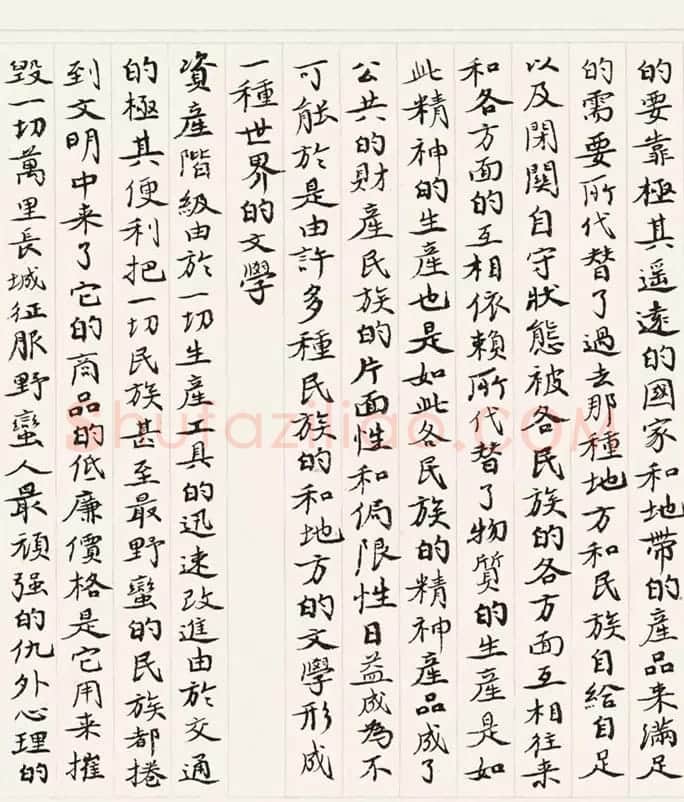 的要靠極其遥遠的國家和地帶的產品来滿足
的需要所代替了過去那種地方和民族自給自足
以及閉關自守狀態被各民族的各方面互相往来
和各方面的互相依賴所代替了物質的生產是如
此精神的生產也是如此各民族的精神產品成了
公共的財產民族的片面性和侷限性日益成為不
可能於是由許多種民族的和地方的文學形成
一種世界的文學
資產階級由於一切生產工具的迅速改進由於交通
的極其便利把一切民族甚至最野蠻的民族都捲
到文明中来了它的商品的低廉價格是它用来摧
毁一切萬里長城征服野蠻人最頑强的仇外心理的
Shufaziliao.COM